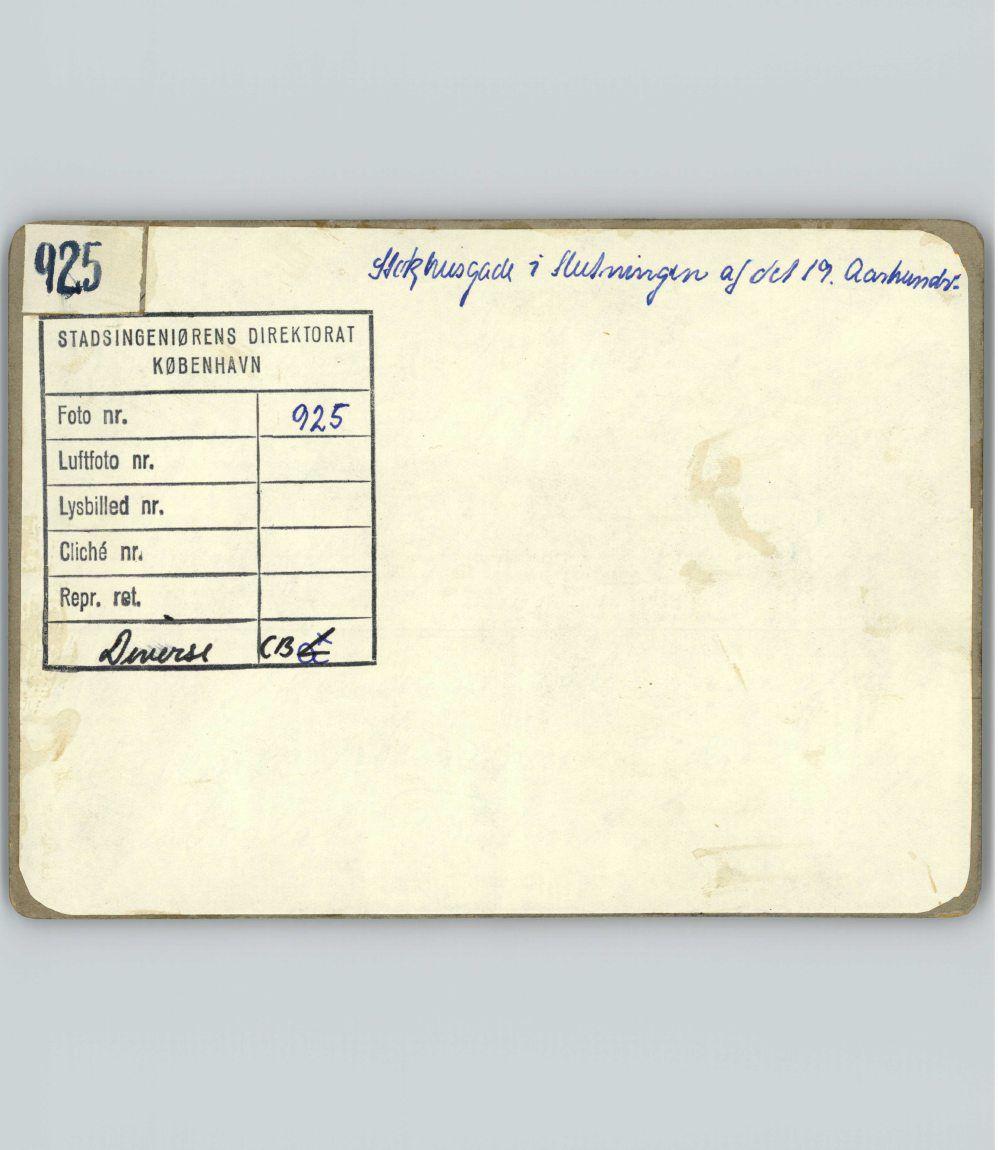 925
Stokhusgade i Slutningen af det 19. Aarhundr.
STADSINGENIØRENS DIREKTORAT
KØBENHAVN
Foto nr. 925
Luftfoto nr.
Lysbilled nr.
Cliché nr.
Repr. ret.
Diverse CB